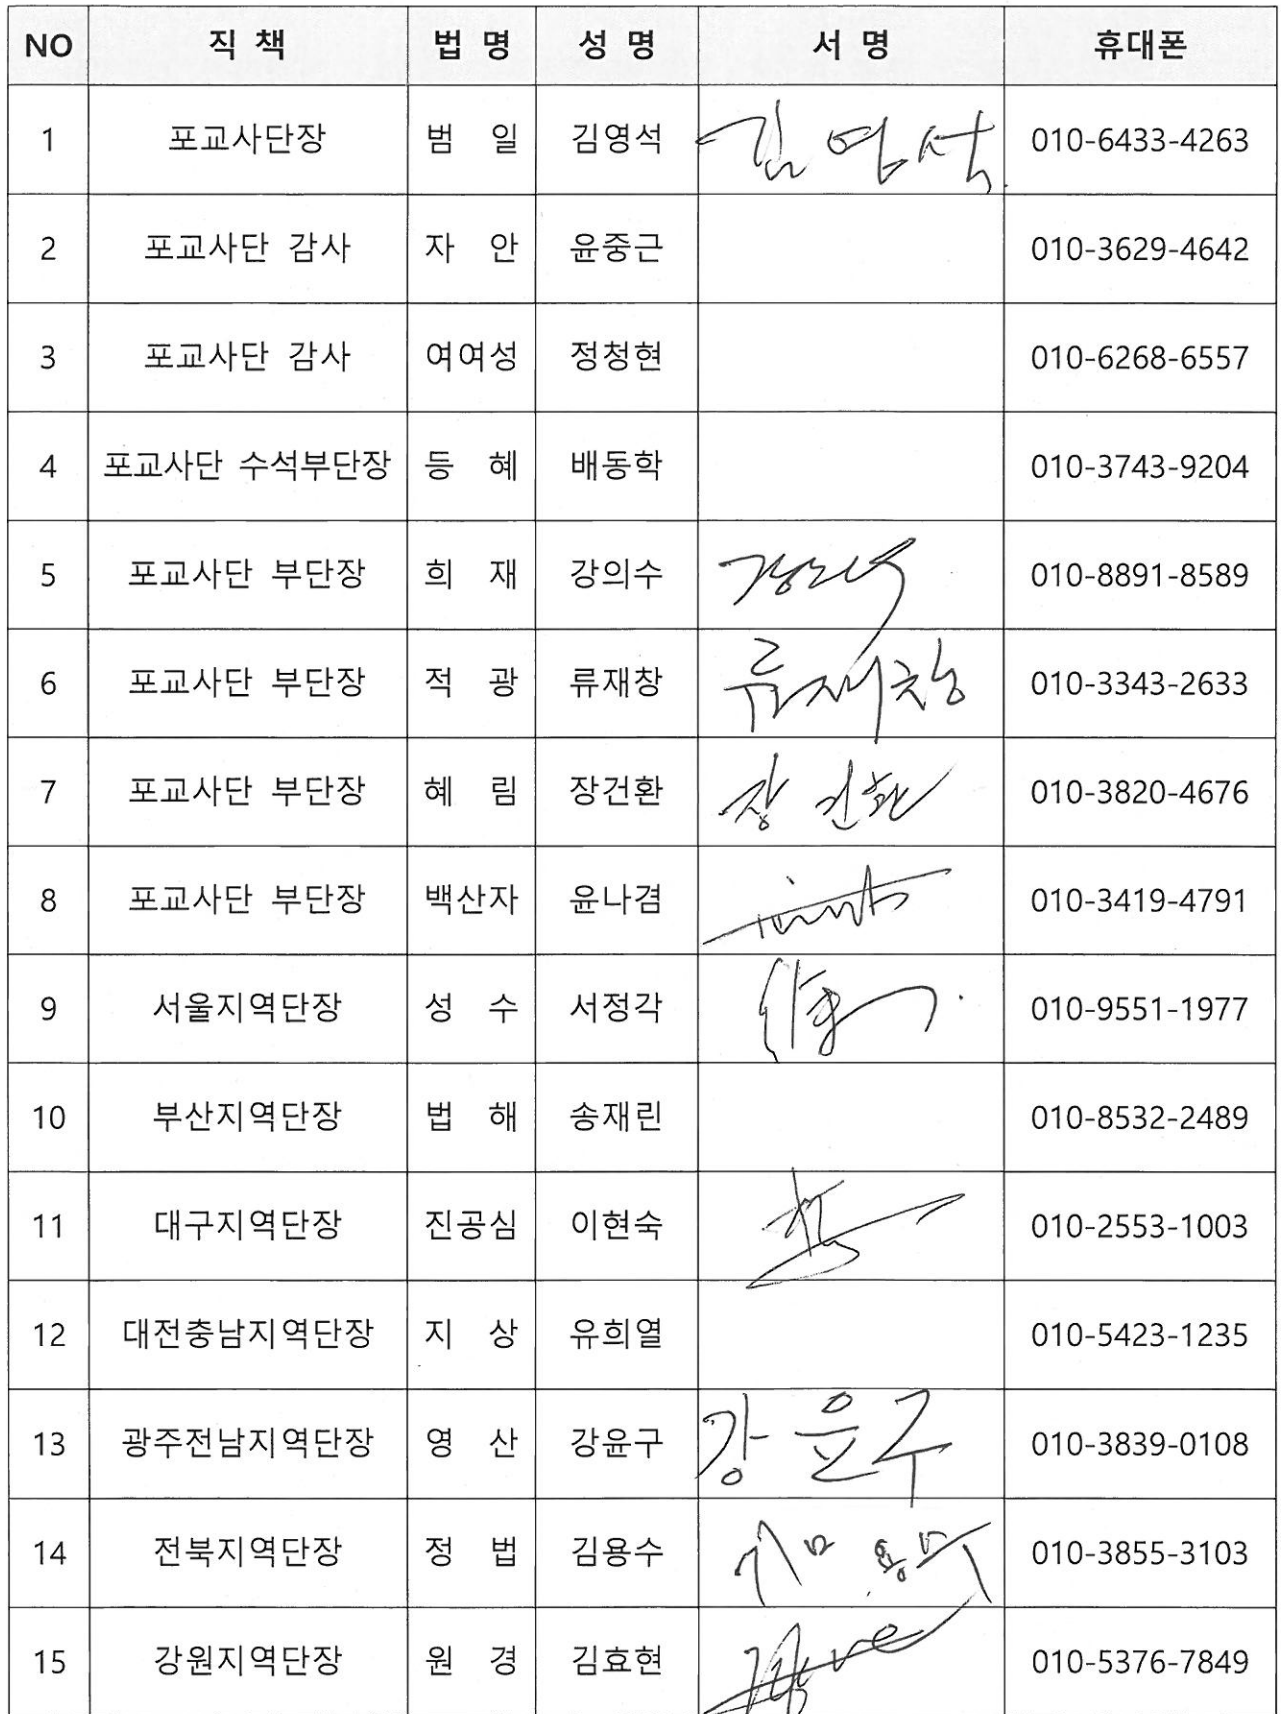 NO 직 책 법 명 성 명 서 명 휴대폰
1 포교사단장 범 일 김영석 김영석 010-6433-4263
2 포교사단 감사 자 안 윤중근 010-3629-4642
3 포교사단 감사 여여성 정청현 010-6268-6557
4 포교사단 수석부단장 등 혜 배동학 010-3743-9204
5 포교사단 부단장 희 재 강의수 강의수 010-8891-8589
6 포교사단 부단장 적 광 류재창 류재창 010-3343-2633
7 포교사단 부단장 혜 림 장건환 장건환 010-3820-4676
8 포교사단 부단장 백산자 윤나겸 010-3419-4791
9 서울지역단장 성 수 서정각 010-9551-1977
10 부산지역단장 법 해 송재린 010-8532-2489
11 대구지역단장 진공심 이현숙 010-2553-1003
12 대전충남지역단장 지 상 유희열 010-5423-1235
13 광주전남지역단장 영 산 강윤구 강윤구 010-3839-0108
14 전북지역단장 정 법 김용수 김용수 010-3855-3103
15 강원지역단장 원 경 김효현 010-5376-7849